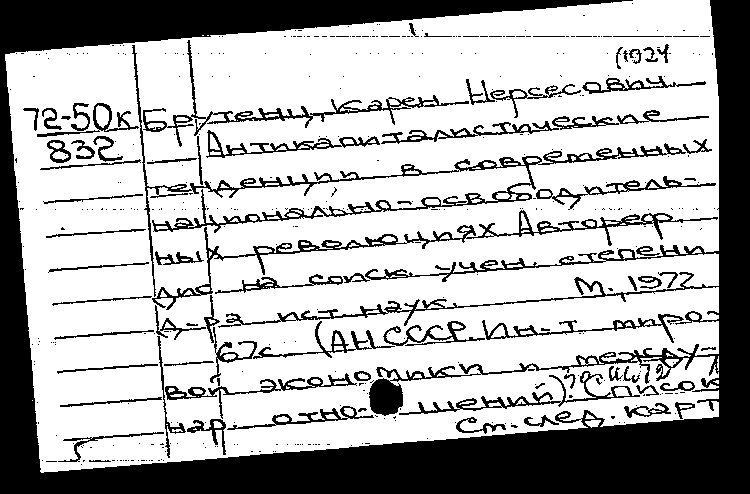 1.
(1924
72-50к Брутенц, Карен Нерсесович.
832 Антикапиталистические
тенденции в современных
национально-освободитель-
ных революциях. Автореф.
дис. на соиск. учен. степени
д-ра ист. наук. М., 1972.
67с. (АН СССР. Ин-т миро-
вой экономики и между-
нар. отношений). (Список
См. след. карт